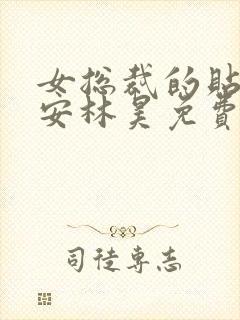 女总裁的贴
安林昊免费
司徒专志